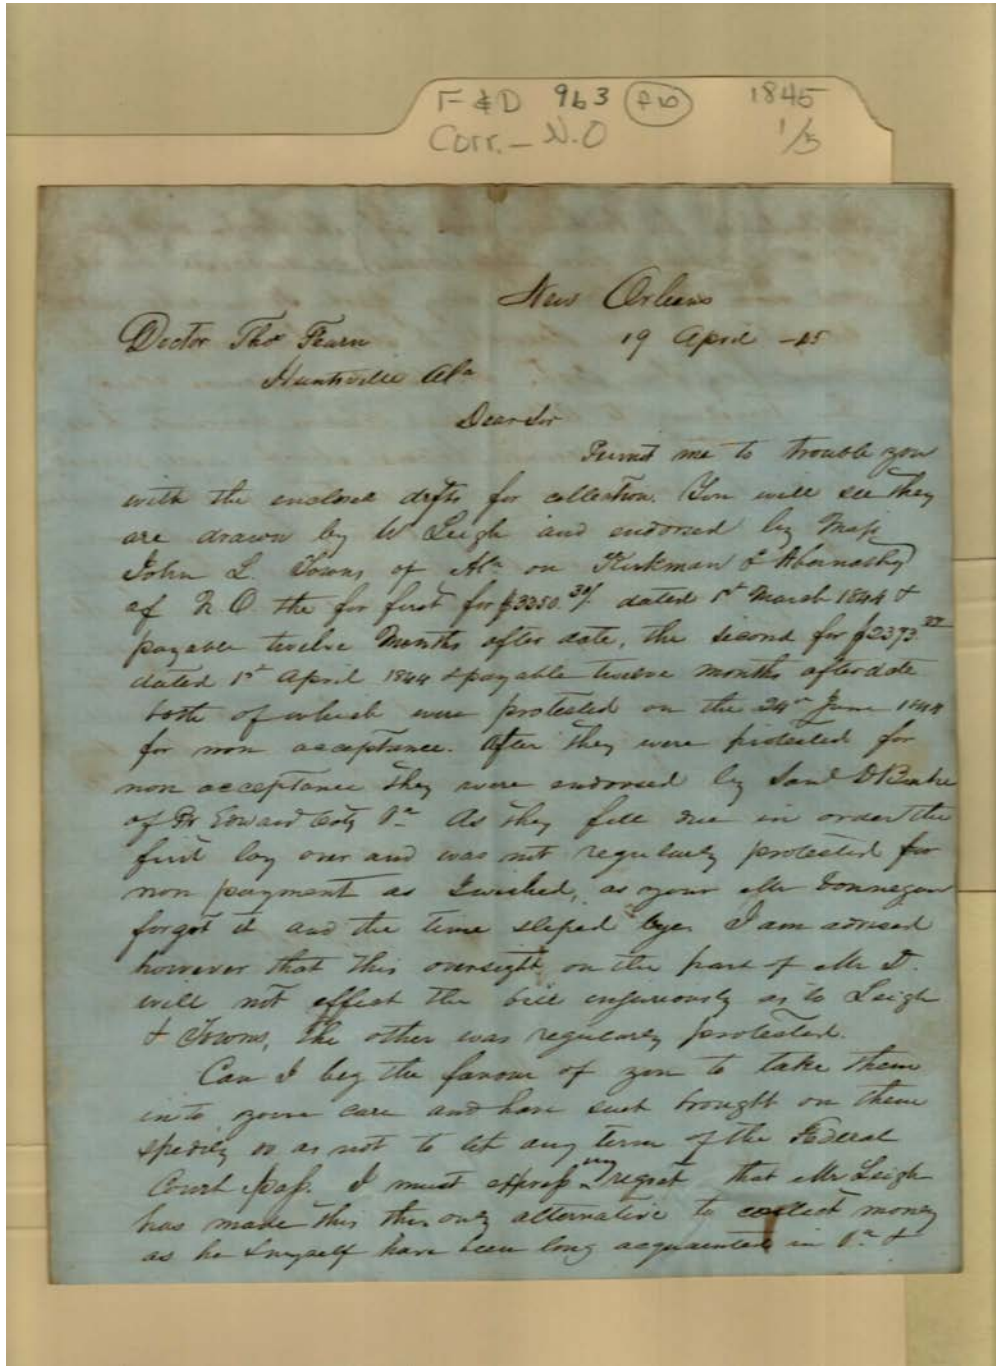 F & D 963 1845
Corr. - N.O 1/5
New Orleans
Doctor Thos Fearn 19 April -45
Huntsville Ala
Dear Sir
Permit me to trouble you
with the enclosed drfts for collection. You will see they
are drawn by W Leigh and endorsed by Maj
John L. Towns of Ala on Kirkman & Abernathy
of N.O. the for first for $3250. dated 1st March 1844 &
payable twelve Months after date, the second for $2393.
dated 1st April 1844 & payable twelve months after date
both of which were protested on the 24th June 1844
for non acceptance. After they were protested for
non acceptance they were endorsed by Saml D Burke
of Pr Edward Coty Va As they fell due in order the
first lay over and was not regularly protested for
non payment as I wished, as your Mr Donnegan
forgot it and the time sliped bye. I am advised
however that this oversight on the part of Mr D.
will not effect the bill injuriously as to Leigh
& Towns, the other was regularly protested.
Can I beg the favour of you to take them
in to your care and have suit brought on them
spedily so as not to let any term of the Federal
Court pass. I must express my regret that Mr Leigh
has made this the only alternative to collect money
as he & myself have been long acquainted in Va &